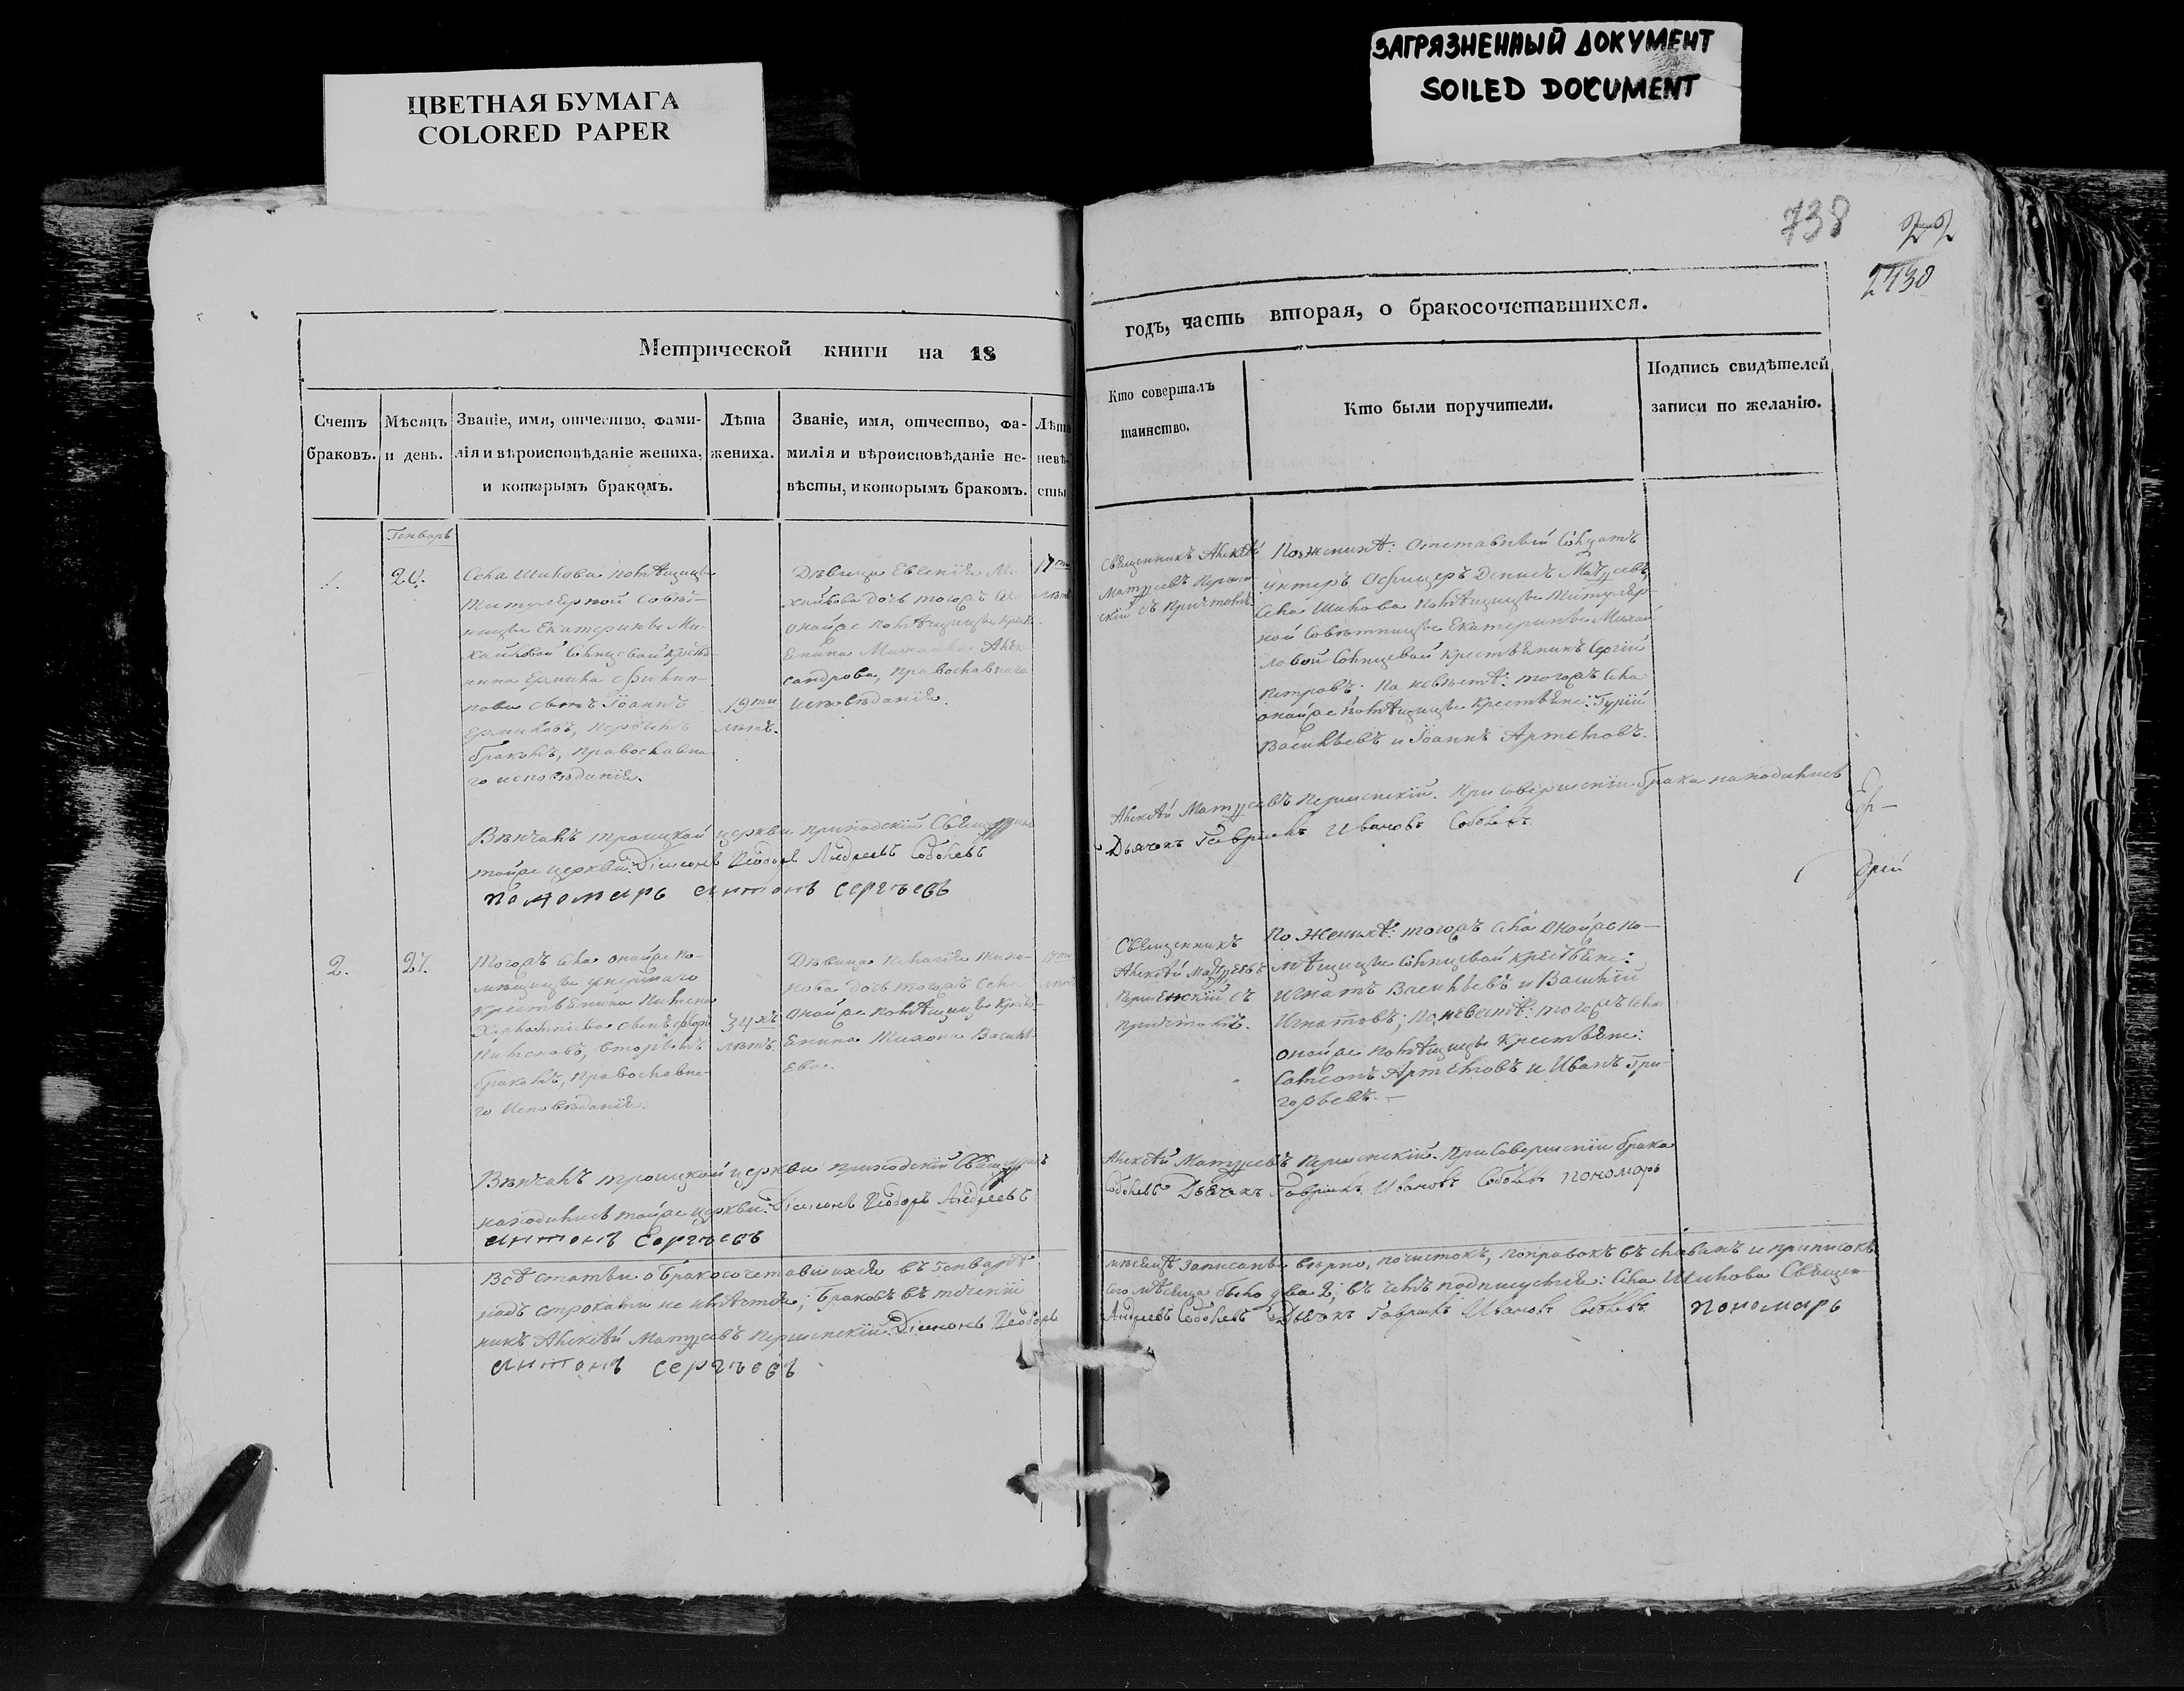 ЦВЕТНАЯ БУМАГА
COLORED PAPER
ЗАГРЯЗНЕННЫЙ ДОКУМЕНТ
SOILED DOCUMENT
738
22
2430
Метрической книги на 18
годъ, часть вторая, о бракосочетавшихся.
Счетъ браковъ.
Мѣсяцъ и день.
Званіе, имя, отчество, фами-
лія и вѣроисповѣданіе жениха,
и которымъ бракомъ.
Лѣта
жениха.
Званіе, имя, отчество, фа-
милія и вѣроисповѣданіе не-
вѣсты, и которымъ бракомъ.
Лѣта
невѣ-
сты
Кто совершалъ
таинство.
Кто были поручители.
Подпись свидѣтелей
записи по желанію.
Генварь
1.
20.
Села Шилова помѣщицы
Титулярной Совѣт-
ницы Екатерины Ми-
хайловой Солнцевой крестья-
нина Ермила Филип-
пова сынъ Іоаннъ
Ермиловъ, первымъ
бракомъ, православна-
го исповѣданія.
19ти
лѣтъ.
Дѣвица Евгенія Ми-
хайлова дочь тогожъ села
онойже помѣщицы кресть-
янина Михаила Алек-
сандрова, православнаго
исповѣданія.
17ти
лѣтъ
Священникъ Алексѣй
Матѳеевъ
съ причтомъ.
По женихѣ: Отставный Солдатъ
унтеръ Офицеръ Денисъ Матѳеевъ,
Села Шилова помѣщицы Титуляр-
ной Совѣтницы Екатерины Михай-
ловой Солнцевой крестьянинъ Сергій
Петровъ: По невѣстѣ: тогожъ села
онойже помѣщицы крестьяне: Гурій
Васильевъ и Іоаннъ Артемовъ.
Вѣнчалъ троицкой церкви приходскій Священникъ
Алексѣй Матѳеевъ При совершеніи брака находились
тойже церкви: Діаконъ Ѳеодоръ Андреевъ Соболевъ
Дьячокъ Гавріилъ Ивановъ Соболевъ
пономарь Антонъ Сергѣевъ
2.
27.
Тогожъ села онойже по-
мѣщицы умершаго
крестьянина Пимена
сынъ
Пименовъ, вторымъ
бракомъ, православна-
го исповѣданія.
34хъ
лѣтъ.
Дѣвица Пелагія Тихо-
нова дочь тогожъ села
онойже помѣщицы кресть-
янина Тихона Василь-
ева.
Священникъ
Алексѣй Матѳеевъ
съ
причтомъ.
По женихѣ: тогожъ села онойже по-
мѣщицы Солнцевой крестьяне:
Игнатъ Васильевъ и Василій
Игнатовъ; По невѣстѣ: тогожъ села
онойже помѣщицы крестьяне:
Самсонъ Артемовъ и Иванъ Гри-
горьевъ.
Вѣнчалъ троицкой церкви приходскій Священникъ
Алексѣй Матѳеевъ При совершеніи брака
находились тойже церкви: Діаконъ Ѳеодоръ Андреевъ
Соболевъ Дьячокъ Гавріилъ Ивановъ Соболевъ пономарь
Антонъ Сергѣевъ
Всѣ статьи о бракосочетавшихся въ Генварѣ
мѣсяцѣ записаны вѣрно, почистокъ, поправокъ въ словахъ и приписокъ
надъ строками не имѣется; браковъ въ теченіи
сего мѣсяца было два 2; въ чемъ подписуемся: Села Шилова Священ-
никъ Алексѣй Матѳеевъ Діаконъ Ѳеодоръ
Андреевъ Соболевъ Дьячокъ Гавріилъ Ивановъ Соболевъ пономарь
Антонъ Сергѣевъ